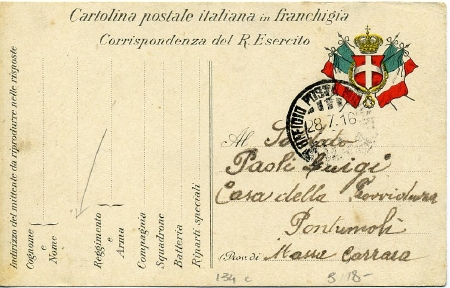 Cartolina postale italiana in franchigia
Corrispondenza del R. Esercito
Indirizzo del mittente da riprodurre nelle risposte
Cognome e Nome
Reggimento e Arma
Compagnia
Squadrone
Batteria
Riparti speciali
UFFICIO POSTA
28.7.16
Al Soldato
Paoli Luigi
Casa della Provvidenza
Pontremoli
(Prov. di Massa Carrara
134 c